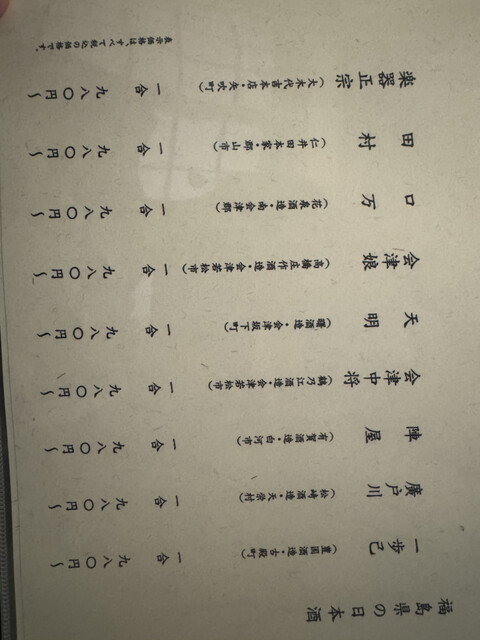 福島県の日本酒
一歩己 (豊国酒造・古殿町) 一合 九八〇円〜
廣戸川 (松崎酒造・天栄村) 一合 九八〇円〜
陣屋 (有賀酒造・白河市) 一合 九八〇円〜
会津中将 (鶴乃江酒造・会津若松市) 一合 九八〇円〜
天明 (曙酒造・会津坂下町) 一合 九八〇円〜
会津娘 (高橋庄作酒造・会津若松市) 一合 九八〇円〜
ロ万 (花泉酒造・南会津郡) 一合 九八〇円〜
田村 (仁井田本家・郡山市) 一合 九八〇円〜
楽器正宗 (大木代吉本店・矢吹町) 一合 九八〇円〜
表示価格は、すべて税込の価格です。